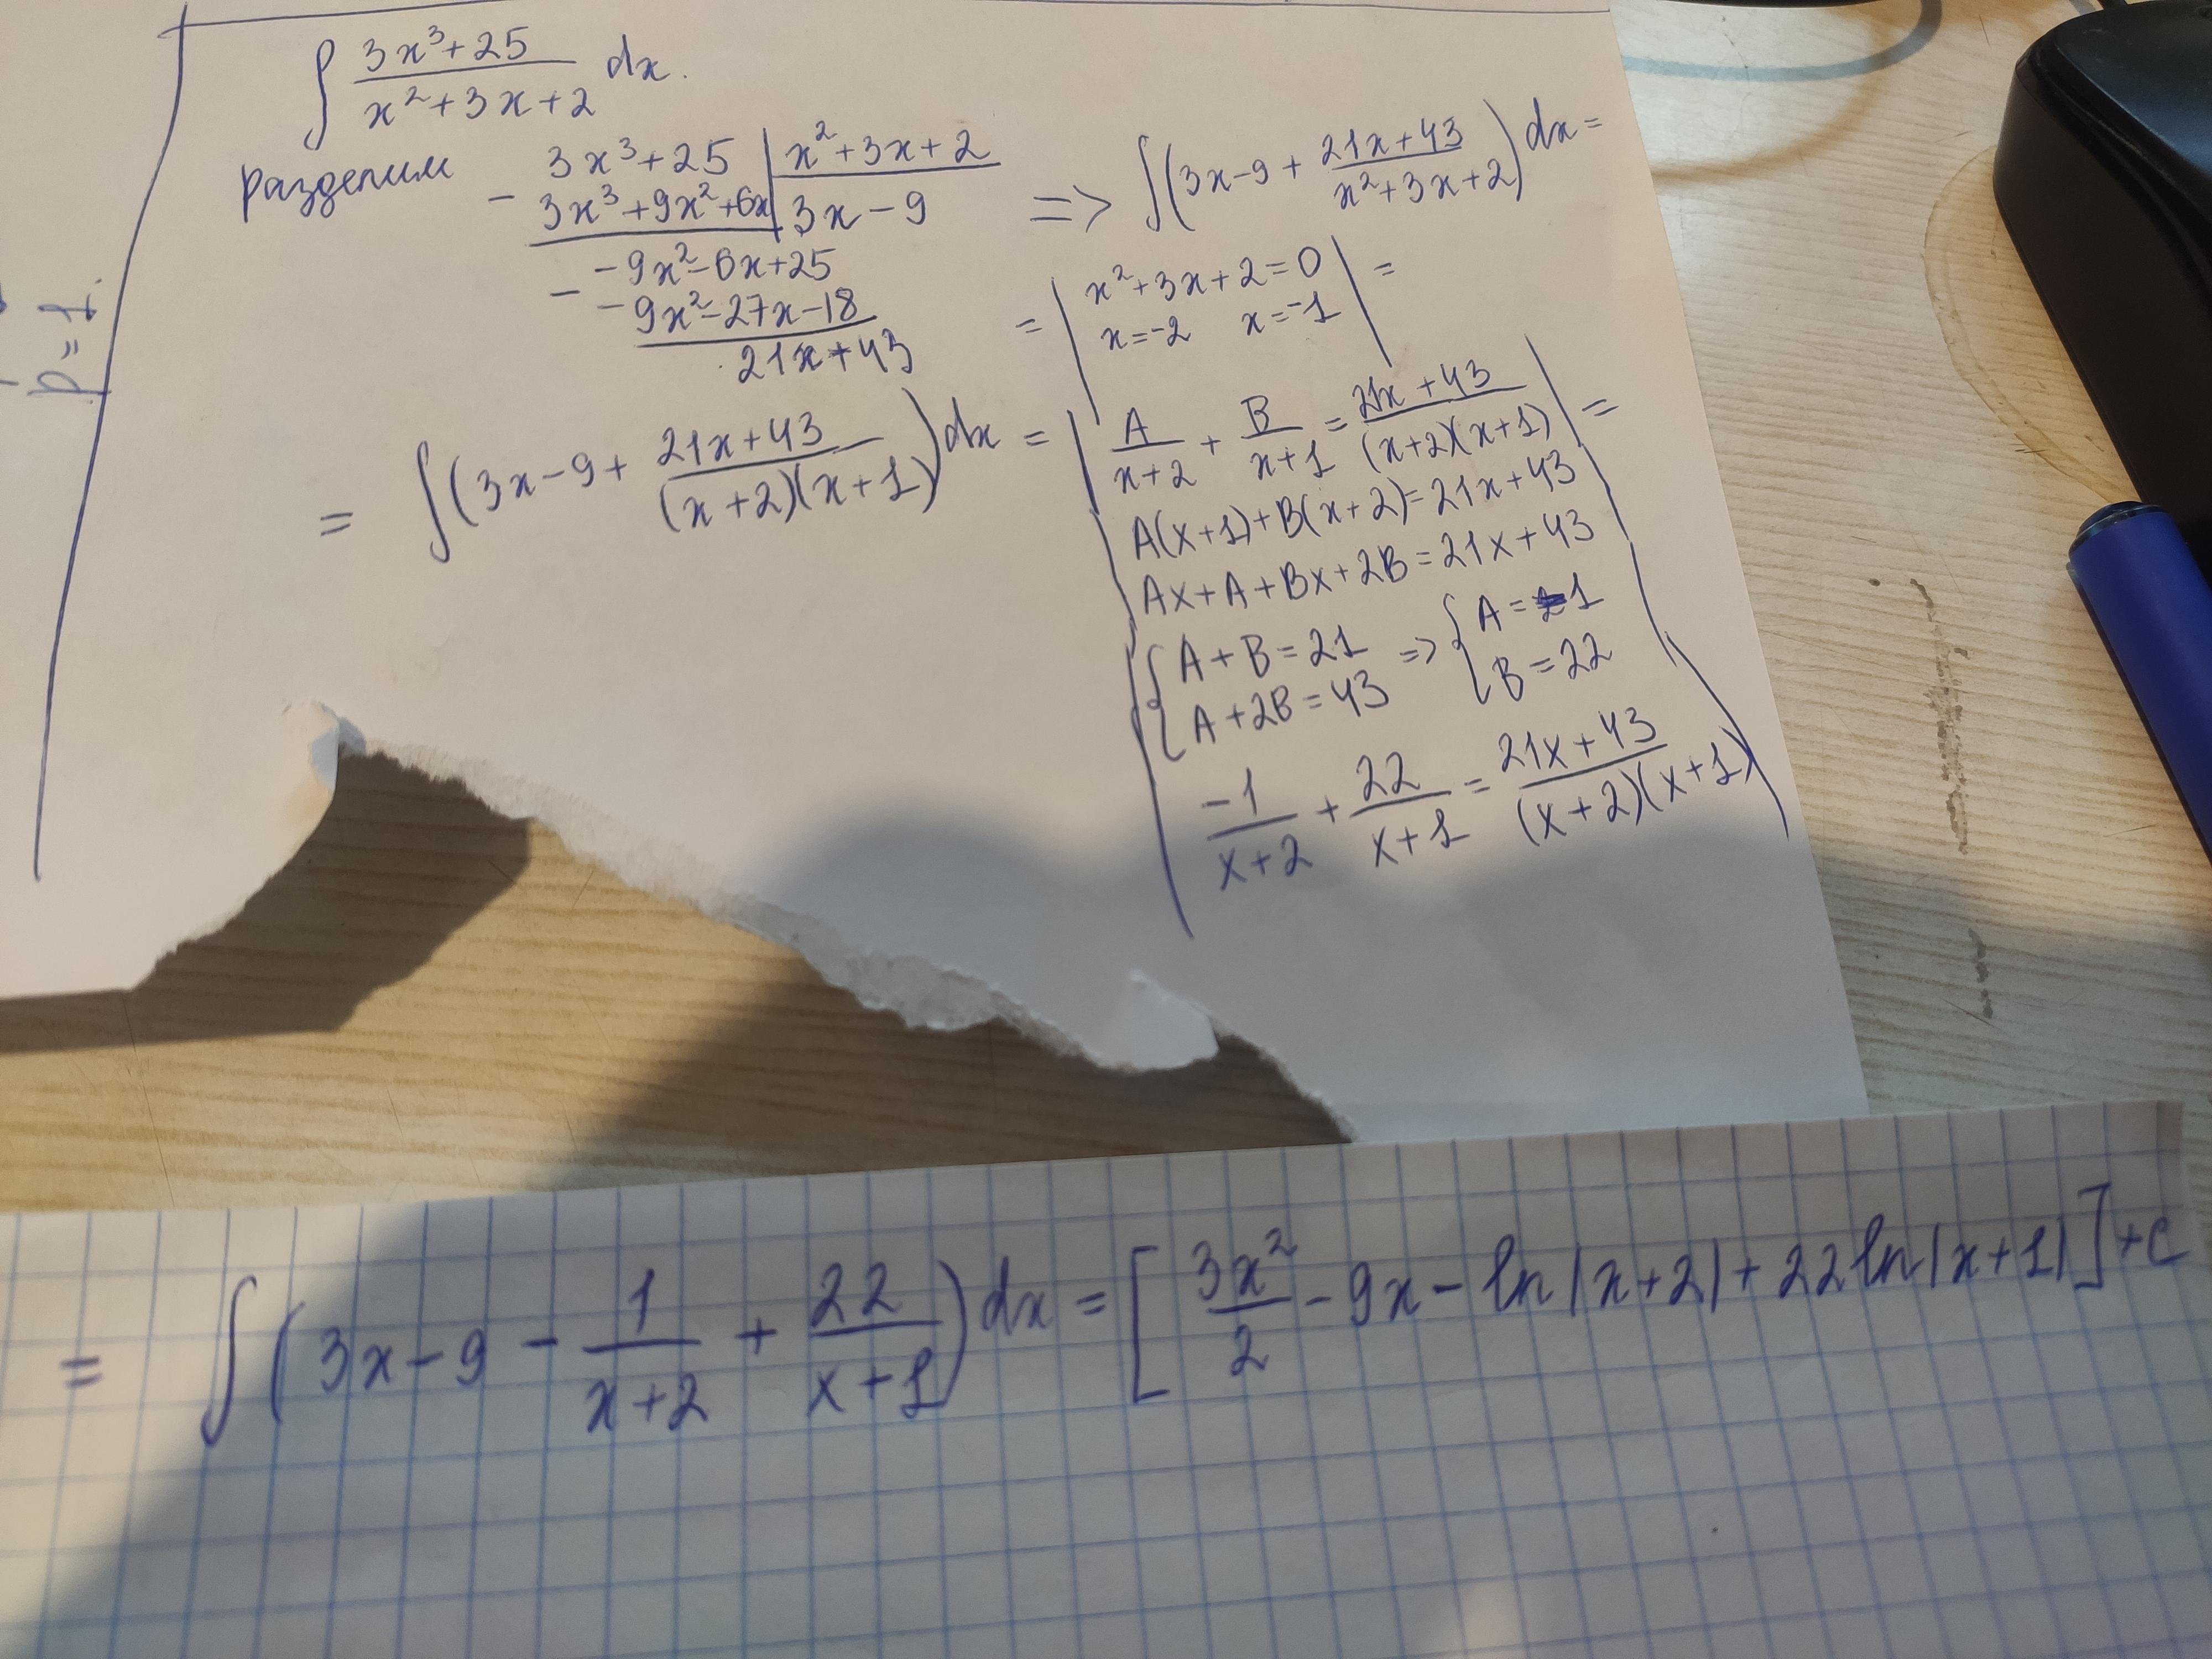 ∫ (3x³+25)/(x²+3x+2) dx.
разделим
3x³+25 | x²+3x+2
- 3x³+9x²+6x | 3x-9
-9x²-6x+25
- -9x²-27x-18
21x+43
=> ∫(3x-9 + (21x+43)/(x²+3x+2)) dx =
= | x²+3x+2=0 | =
x=-2 x=-1
= ∫(3x-9+ (21x+43)/((x+2)(x+1))) dx =
| A/(x+2) + B/(x+1) = (21x+43)/((x+2)(x+1)) | =
A(x+1)+B(x+2)=21x+43
Ax+A+Bx+2B=21x+43
{ A+B=21 => { A=-1
A+2B=43 B=22
-1/(x+2) + 22/(x+1) = (21x+43)/((x+2)(x+1))
= ∫(3x-9 - 1/(x+2) + 22/(x+1)) dx = [3x²/2 - 9x - ln|x+2| + 22ln|x+1|]+c
p=1.